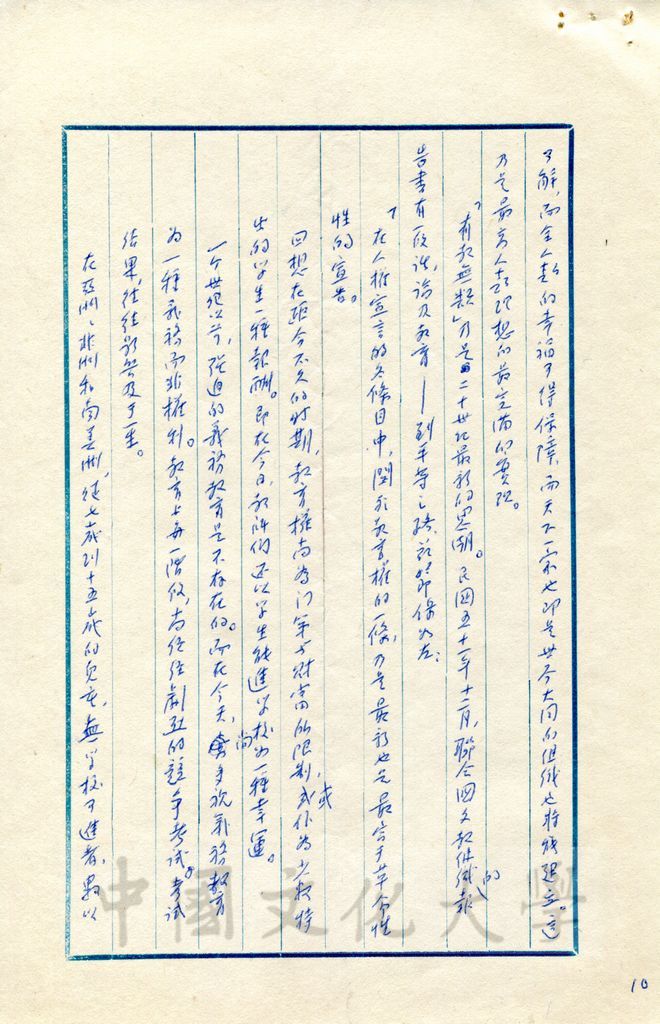 了解，而全人類的幸福可得保障，而天下一家也即是世界大同的組織也將能建立。這
乃是最高人類理想的最完滿的實現。
「有教無類」乃是二十世紀最新的思潮。民國五十一年十二月，聯合國文教組織的報
告書有一段談論及教育——到平等之路，茲節保如左：
「在人權宣言的各條目中，關於教育權的一條，乃是最新也是最富于革命性
性的宣告。
回想在距今不久的時期，教育權尚為門第與財富所限制，或作為少數特
出的學生一種報酬。即在今日，教師們還以學生能進學校為一種幸運。
一个世紀以前，強迫的義務教育是不存在的。而在今天，尚多視義務教育
為一種義務而非權利。教育上每一階段，尚經經劇烈的競爭考試。考試
結果，往往影響及于一生。
在亞洲、非洲和南美洲，從七歲到十五歲的兒童，無學校可進者，畧以
10
中國文化大學